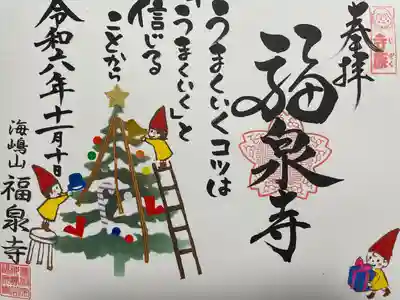 奉拝
福泉寺
うまくいくコツは
「うまくいく」と
信じる
ことから
令和六年十一月十日
海嶋山 福泉寺